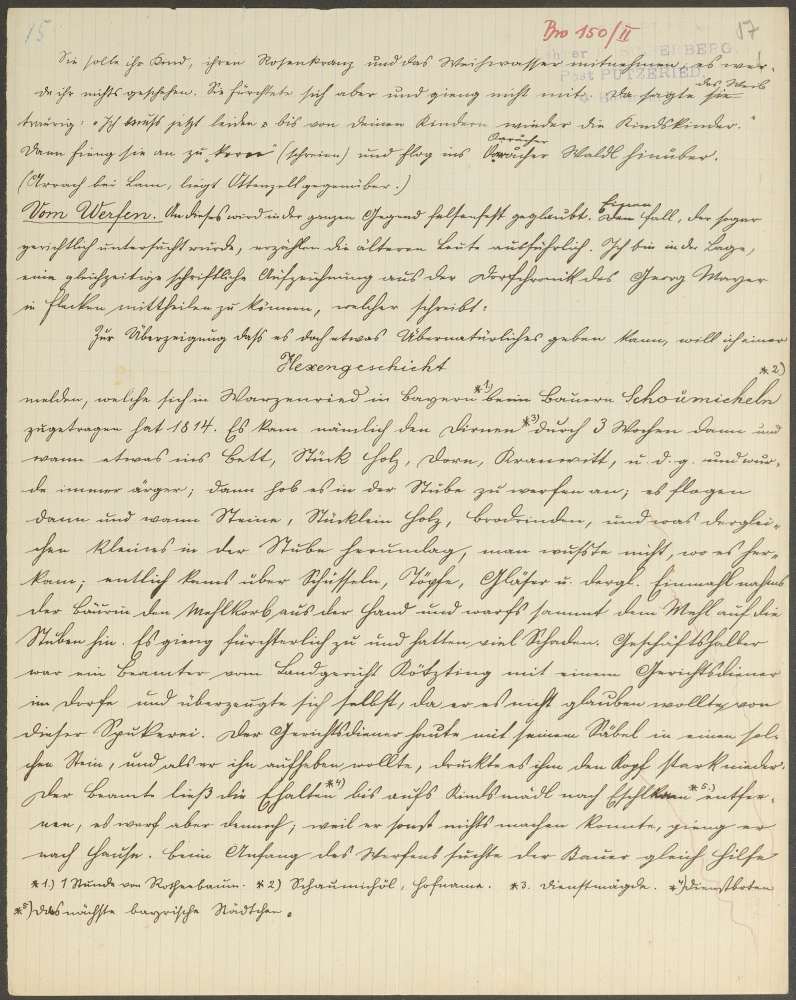 15
Bro 150/II
17
Lehrer
BERG
Post PUTZERIED
Sie solle ihr Kind, ihren Rosenkranz und das Weihwasser mitnehmen, es wer-
de ihr nichts geschehen. Sie fürchtete sich aber und gieng nicht mit. Da sagte sie das Weib
traurig: "Ich muß jetzt leiden bis von deinen Kindern wieder die Kindskinder."
Dann fieng sie an zu (schreien) und flog ins Arracher Waldl hinüber.
(Arrach bei Lam, liegt Ottenzell gegenüber.)
Vom Werfen. An dieses wird in der ganzen Gegend felsenfest geglaubt. Einen Fall, der sogar
gerichtlich untersucht wurde, erzählen die älteren Leute ausführlich. Ich bin in der Lage,
eine gleichzeitige schriftliche Aufzeichnung aus der Dorfchronik des Georg Mayer
in Flecken mittheilen zu können, welcher schreibt:
Zur Überzeigung daß es doch etwas Übernatürliches geben kann, will ich einer
Hexengeschicht
melden, welche sich in Warzenried in Bayern *1) beim Bauern Schoumicheln *2)
zugetragen hat 1814. Es kam nämlich den Dirnen *3) durch 3 Wochen dann und
wann etwas ins Bett, Stück Holz, Dorn, Kranwitt, u. d. g. und wur-
de immer ärger; dann hob es in der Stube zu werfen an; es flogen
dann und wann Steine, Stücklein Holz, Brodrinden, und was derglei-
chen kleins in der Stube herumlag, man wußte nicht, wo es her-
kam; entlich kams über Schüsseln, Töpfe, Gläser u. dergl. Einmahl nahms
der Bäurin den Mehlkorb aus der Hand und warfs sammt dem Mehl auf die
Stuben hin. Es gieng fürchterlich zu und hatten viel Schaden. Geschäftshalber
war ein Beamter vom Landgericht Kötzting mit einem Gerichtsdiener
im Dorfe und überzeugte sich selbst, da er es nicht glauben wollte, von
dieser Spukerei. Der Gerichtsdiener haute mit seinem Säbel in einen sol-
chen Stein, und als er ihn aufheben wollte, druckte es ihm den Kopf stark nieder.
Der Beamte ließ die Ehalten *4) bis aufs Kindsmädl nach Eschlkam *5.) entfer-
nen, es warf aber dennoch; weil er sonst nichts machen konnte, gieng er
nach Hause. Beim Anfang des Werfens suchte der Bauer gleich Hilfe
*1.) 1 Stunde von Rothenbaum. *2) Schaumichöl, Hofname. *3. Dienstmägde. *4) Dienstboten
*5) Das nächste bayrische Städtchen.